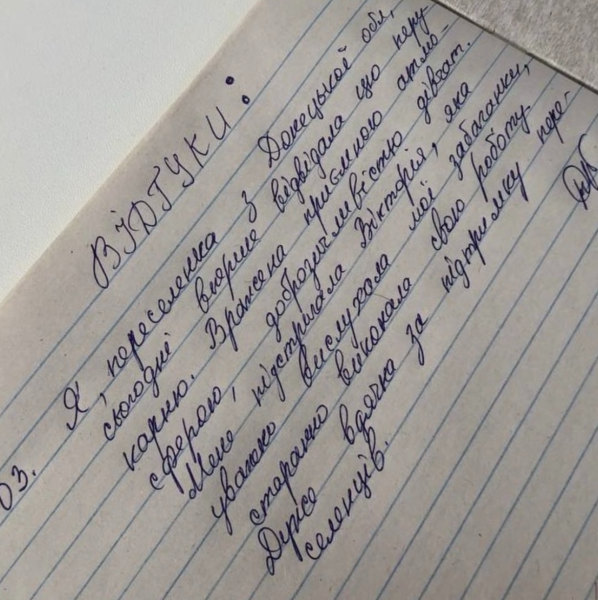 ВІДГУКИ:
03.
Я, переселенка з Донецької обл,
сьогодні вперше відвідала цю перу-
карню. Вражена приємною атмо-
сферою, доброзичливістю дівчат.
Мене підстригала Вікторія, яка
уважно вислухала мої забаганки,
старанно виконала свою роботу.
Дуже вдячна за підтримку пере-
селенців.